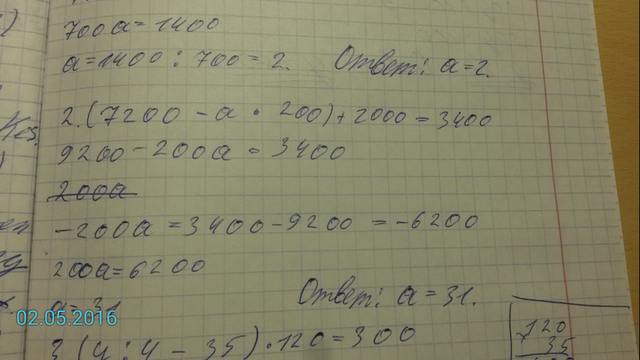 700a = 1400
a = 1400 : 700 = 2. Ответ: a = 2.
2. (7200 - a • 200) + 2000 = 3400
9200 - 200a = 3400
200a
-200a = 3400 - 9200 = -6200
200a = 6200
a = 31 Ответ: a = 31.
3 (y : 4 - 35) • 120 = 300
120
35
02.05.2016